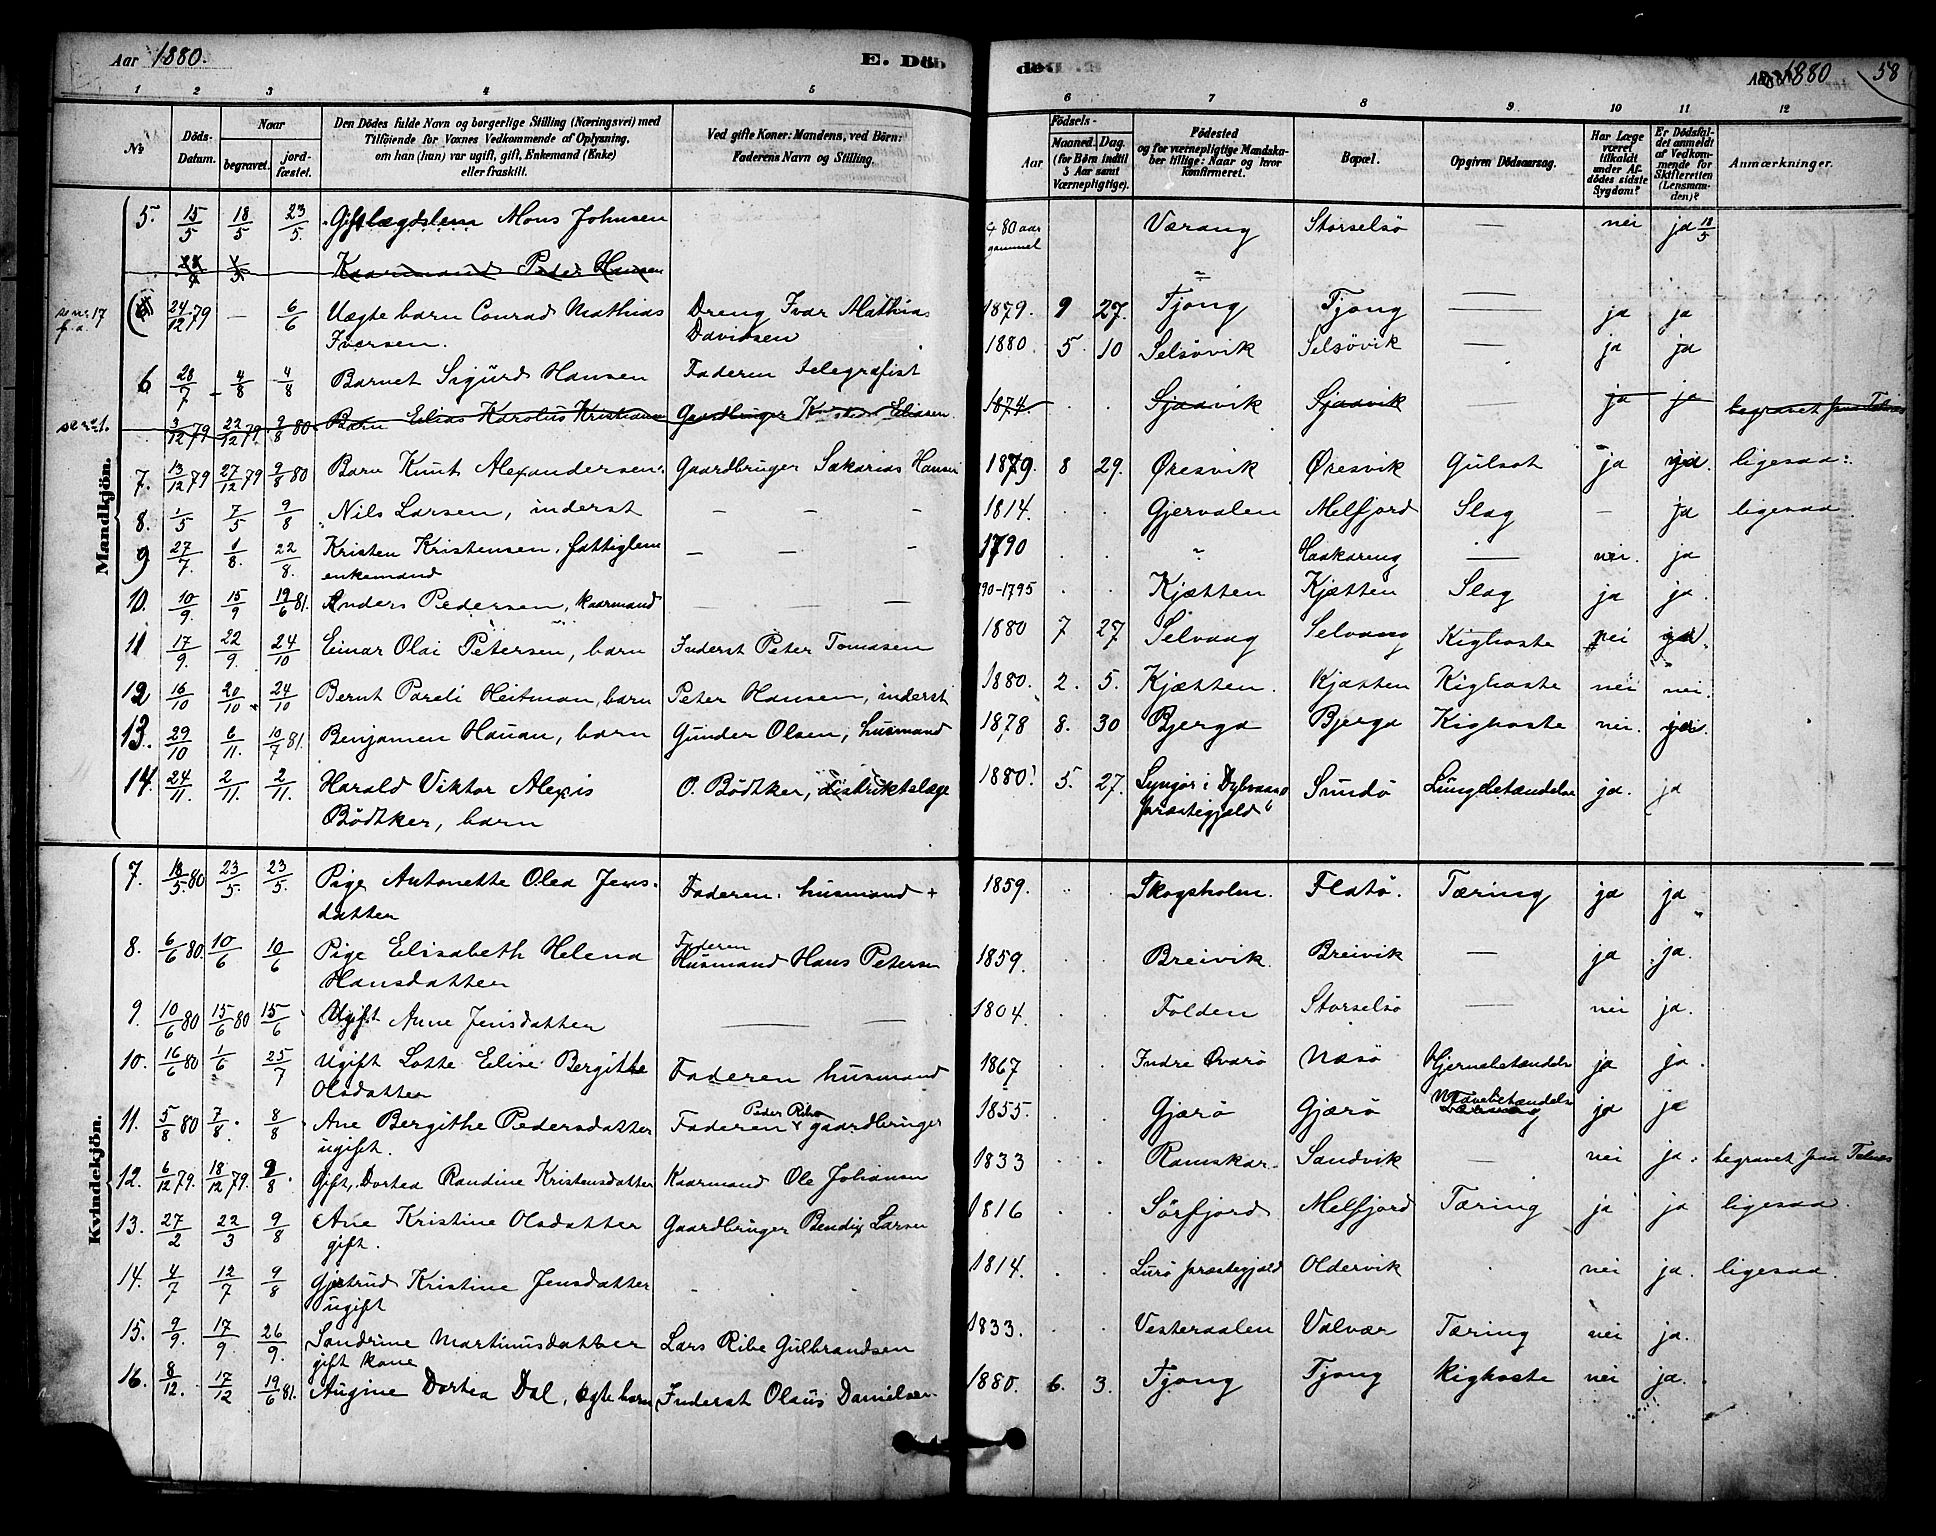 Aar 1880. E. Död
Aar 1880 58
1 2 3 4 5 6 7 8 9 10 11 12
№ Döds-Datum. Naar begravet. jordfæstet. Den Dödes fulde Navn og borgerlige Stilling (Næringsvei) med Tilföiende for Voxnes Vedkommende af Oplysning, om han (hun) var ugift, gift, Enkemand (Enke) eller fraskilt. Ved gifte Koner: Mandens, ved Börn: Faderens Navn og Stilling. Födsels- Aar Maaned. Dag. (for Börn indtil 5 Aar samt Værnepligtige). Födested og for værnepligtige Mandskaber tillige: Naar og hvor konfirmeret. Bopæl. Opgiven Dödsaarsag. Har Læge været tilkaldt under Afdödes sidste Sygdom? Er Dödsfaldet anmeldt af Vedkommende for Skifteretten (Lensmanden)? Anmærkninger.
Mandkjön.
5. 15/5 18/5 23/5. Gift lægdslem Mons Johnsen 80 aar gammel Værang Storselsö — nei ja 18/5
Kaarmand Peder Hansen
24/12 79 — 6/6 Uægte barn Conrad Mathias Iversen. Dreng Ivar Mathias Davidsen 1879. 9 27. Tjong Tjong — ja ja
6 28/7 4/8 4/8 Barnet Sigurd Hansen Faderen telegrafist 1880. 5. 10 Selsövik Selsövik — ja ja
3/12 79 22/12 79 9/8 80 Barn Elias Karolus Kristian Gaardbruger Eliasen 1874. . . Sjaavik Sjaavik ja ja begravet paa Telnes
7. 13/12 79 27/12 79 9/8 80 Barn Knut Alexandersen Gaardbruger Sakarias Hansen 1879. 8 29. Øresvik Øresvik Gulsot ja ja. ligesaa.
8. 1/5 7/5 9/8 Nils Larsen, inderst — — — 1814. . . Gjervalen Melfjord Slag — ja ligesaa
9 27/7. 1/8. 22/8. Kristen Kristensen, fattiglem enkemand — — — 1790 . Haakaring — nei. ja
10. 10/9. 15/9 19/6 81. Anders Pedersen, kaarmand — — — 90-1795 . . Kjætten Kjætten Slag ja ja.
11 17/9. 22/9. 24/10 Einar Olai Petersen, barn Inderst Peter Tomasen 1880 7 27 Selvaag Selvaag Kighoste nei ja.
12 16/10 20/10. 24/10 Bernt Pareli Heitman, barn Peter Hansen, inderst 1880. 2. 5. Kjætten. Kjætten Kighoste nei nei.
13. 29/10 6/11. 10/7 81. Benjamen Hauan, barn Gunder Olsen, husmand 1878 8. 30 Bjerga Bjerga Kighoste nei. ja.
14. 24/11. 2/11. 2/11. Harald Viktor Alexis Bödtker, barn O. Bödtker, distriktslæge 1880 5. 27. Lyngør i Dybvaag præstegjæld Sundö Lungebetændelse ja. ja
Kvindekjön.
7. 18/5 80 23/5 23/5. Pige Antonette Olea Jensdatter Faderen, husmand + 1859. Skogsholm. Flatö. Tæring ja ja
8. 6/6 80. 10/6 10/6 Pige Elisabeth Helena Hansdatter Faderen Husmand Hans Petersen 1859. . . Breivik. Breivik — ja ja.
9. 10/6 80 15/6 80 15/6 Ugift Anne Jensdatter — — 1804. . . Folden Storselsö — nei ja.
10. 16/6 80 1/6 25/7 Ugift Lotte Elise Bergitte Olsdatter Faderen husmand 1867 . . Indre Qvarö Næsö Hjernebetændelse ja ja.
11. 5/8 80 7/8. 8/8 Ane Bergithe Pedersdatter ugift. Faderen Peder Ribe gaardbruger 1855. . . Gjærö Gjærö Mavebetændelse ja ja
12. 6/12 79. 18/12 79. 9/8. Gift, Dortea Randine Kristensdatter Kaarmand Ole Johansen 1833 . . Ramskar Sandvik — nei ja. begravet paa Telnes
13. 27/2 22/3 9/8 Ane Kristine Olsdatter gift. Gaardbruger Bendix Larsen 1816 . . Sörfjord Melfjord Tæring ja ja ligesaa.
14. 4/7 12/7 9/8 Gjertrud Kristine Jensdatter ugift 1814. . . Lurö præstegjæld Oldervik . nei ja. ligesaa.
15. 9/9. 17/9. 26/9. Sandrine Martinusdatter gift kone Lars Ribe Gulbrandsen 1833. . . Vesteraalen Valvær Tæring nei ja.
16. 8/12. 17/12 19/6 81. Augine Dortea Dal, ægte barn Inderst Olaus Danielsen 1880. 6. 3. Tjong Tjong Kighoste nei ja.